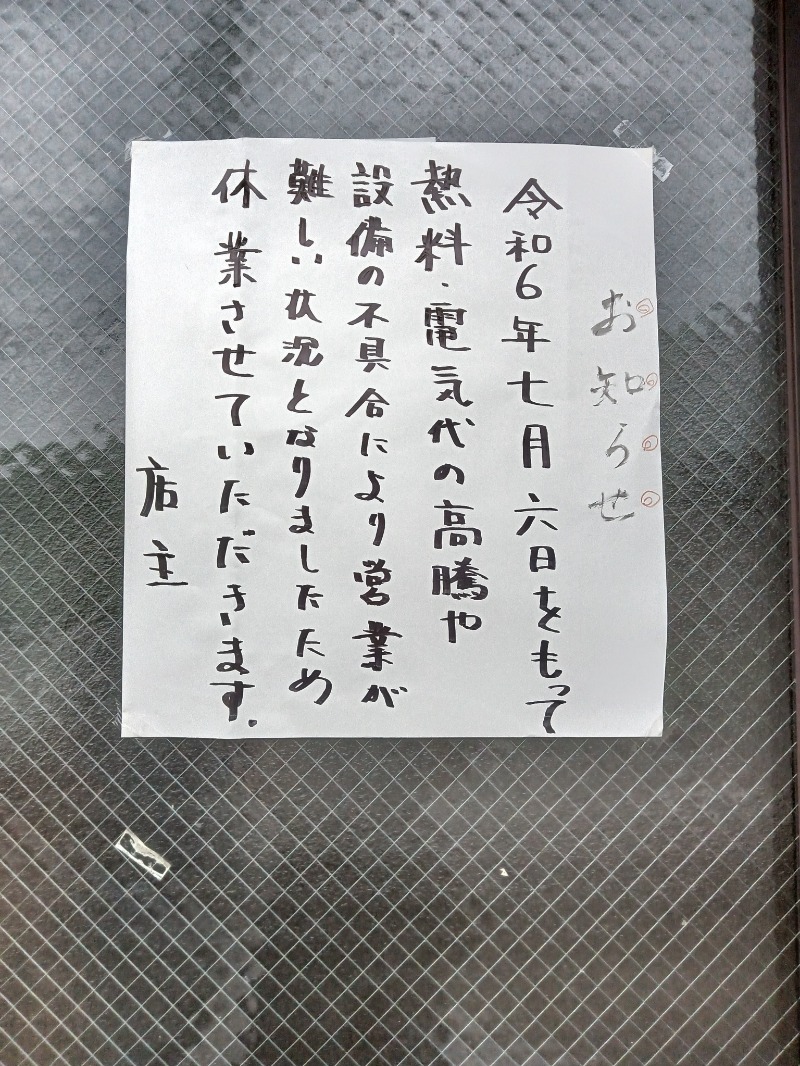 お知らせ
令和6年七月六日をもって
熱料・電気代の高騰や
設備の不具合により営業が
難しい状況となりましたため
休業させていただきます。
店主